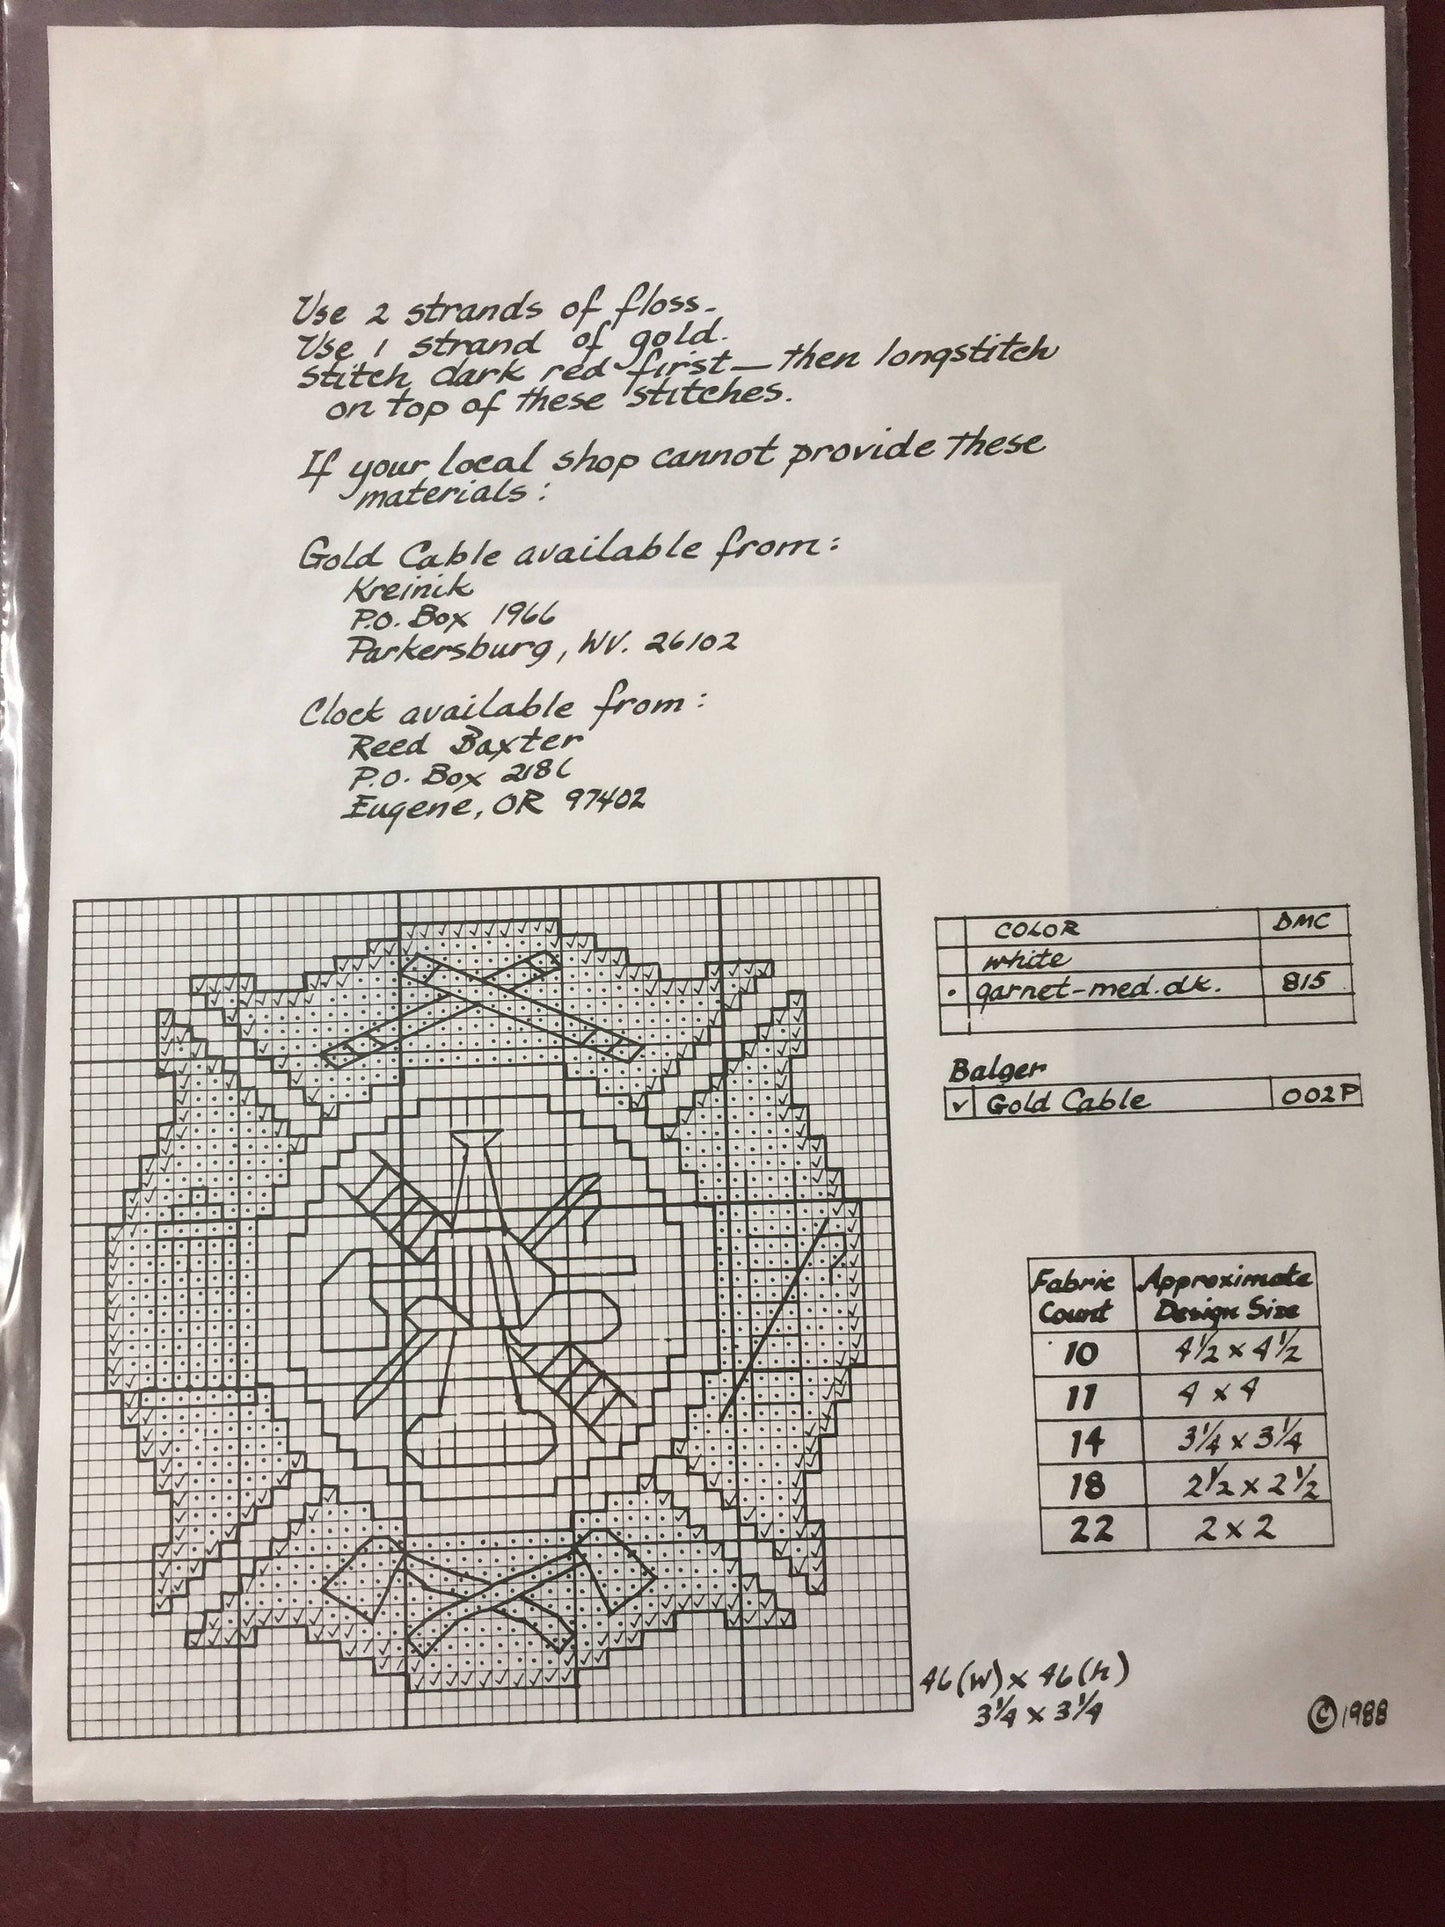 Use 2 strands of floss.
Use 1 strand of gold.
Stitch dark red first—then longstitch
on top of these stitches.
If your local shop cannot provide these
materials:
Gold Cable available from:
Kreinik
P.O. Box 1966
Parkersburg, WV. 26102
Clock available from:
Reed Baxter
P.O. Box 2186
Eugene, OR 97402
COLOR DMC
white
• garnet-med.dk. 815
Balger
✓ Gold Cable 002P
Fabric Count Approximate Design Size
10 4½ x 4½
11 4 x 4
14 3¼ x 3¼
18 2½ x 2½
22 2 x 2
46(w) x 46(h)
3¼ x 3¼
©1988